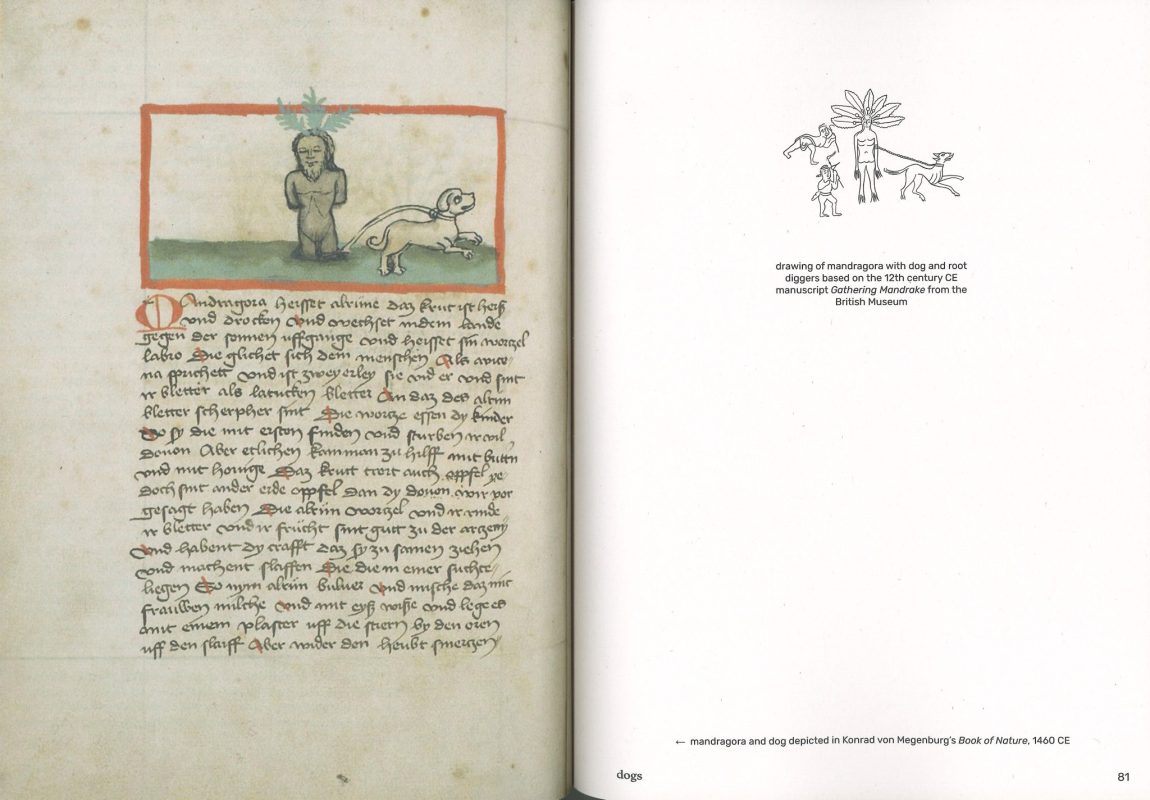 Mandragora heisset alrune daz krut ist heiß
vnd drocken vnd wechset indem lande
gegen der sonnen uffgange vnd heisset sin worzel
labro Die glichet sich dem menschen Als avice-
na sprichett vnd ist zweyerley sie vnd er vnd sint
ir bletter als latucken bletter An daz des alrun
bletter scherpher sint Die wortze essen dy kinder
So sy die mit ersten finden vnd sturben ir vil
douon Aber etlichen kamman zu hilff mit buttn
vnd mit honige Daz krutt trort auch oppfel ye-
doch sint ander erde oppfel dan dy douon wir vor
gesagt haben Die alrun wortzel vnd ir rinde
ir bletter vnd ir frücht sint gutt zu der artzeny
vnd habent dy crafft daz sy zu samen ziehen
vnd machent slaffen Die die in einer suchte
liegen So nym alrun buluer vnd mische daz mit
frauwen milche vnd mit eyß wiße vnd lege es
mit einem plaster uff die stiern by den oren
uff den slaiff Aber wider den heubt smertzen
drawing of mandragora with dog and root
diggers based on the 12th century CE
manuscript Gathering Mandrake from the
British Museum
← mandragora and dog depicted in Konrad von Megenburg's Book of Nature, 1460 CE
dogs
81